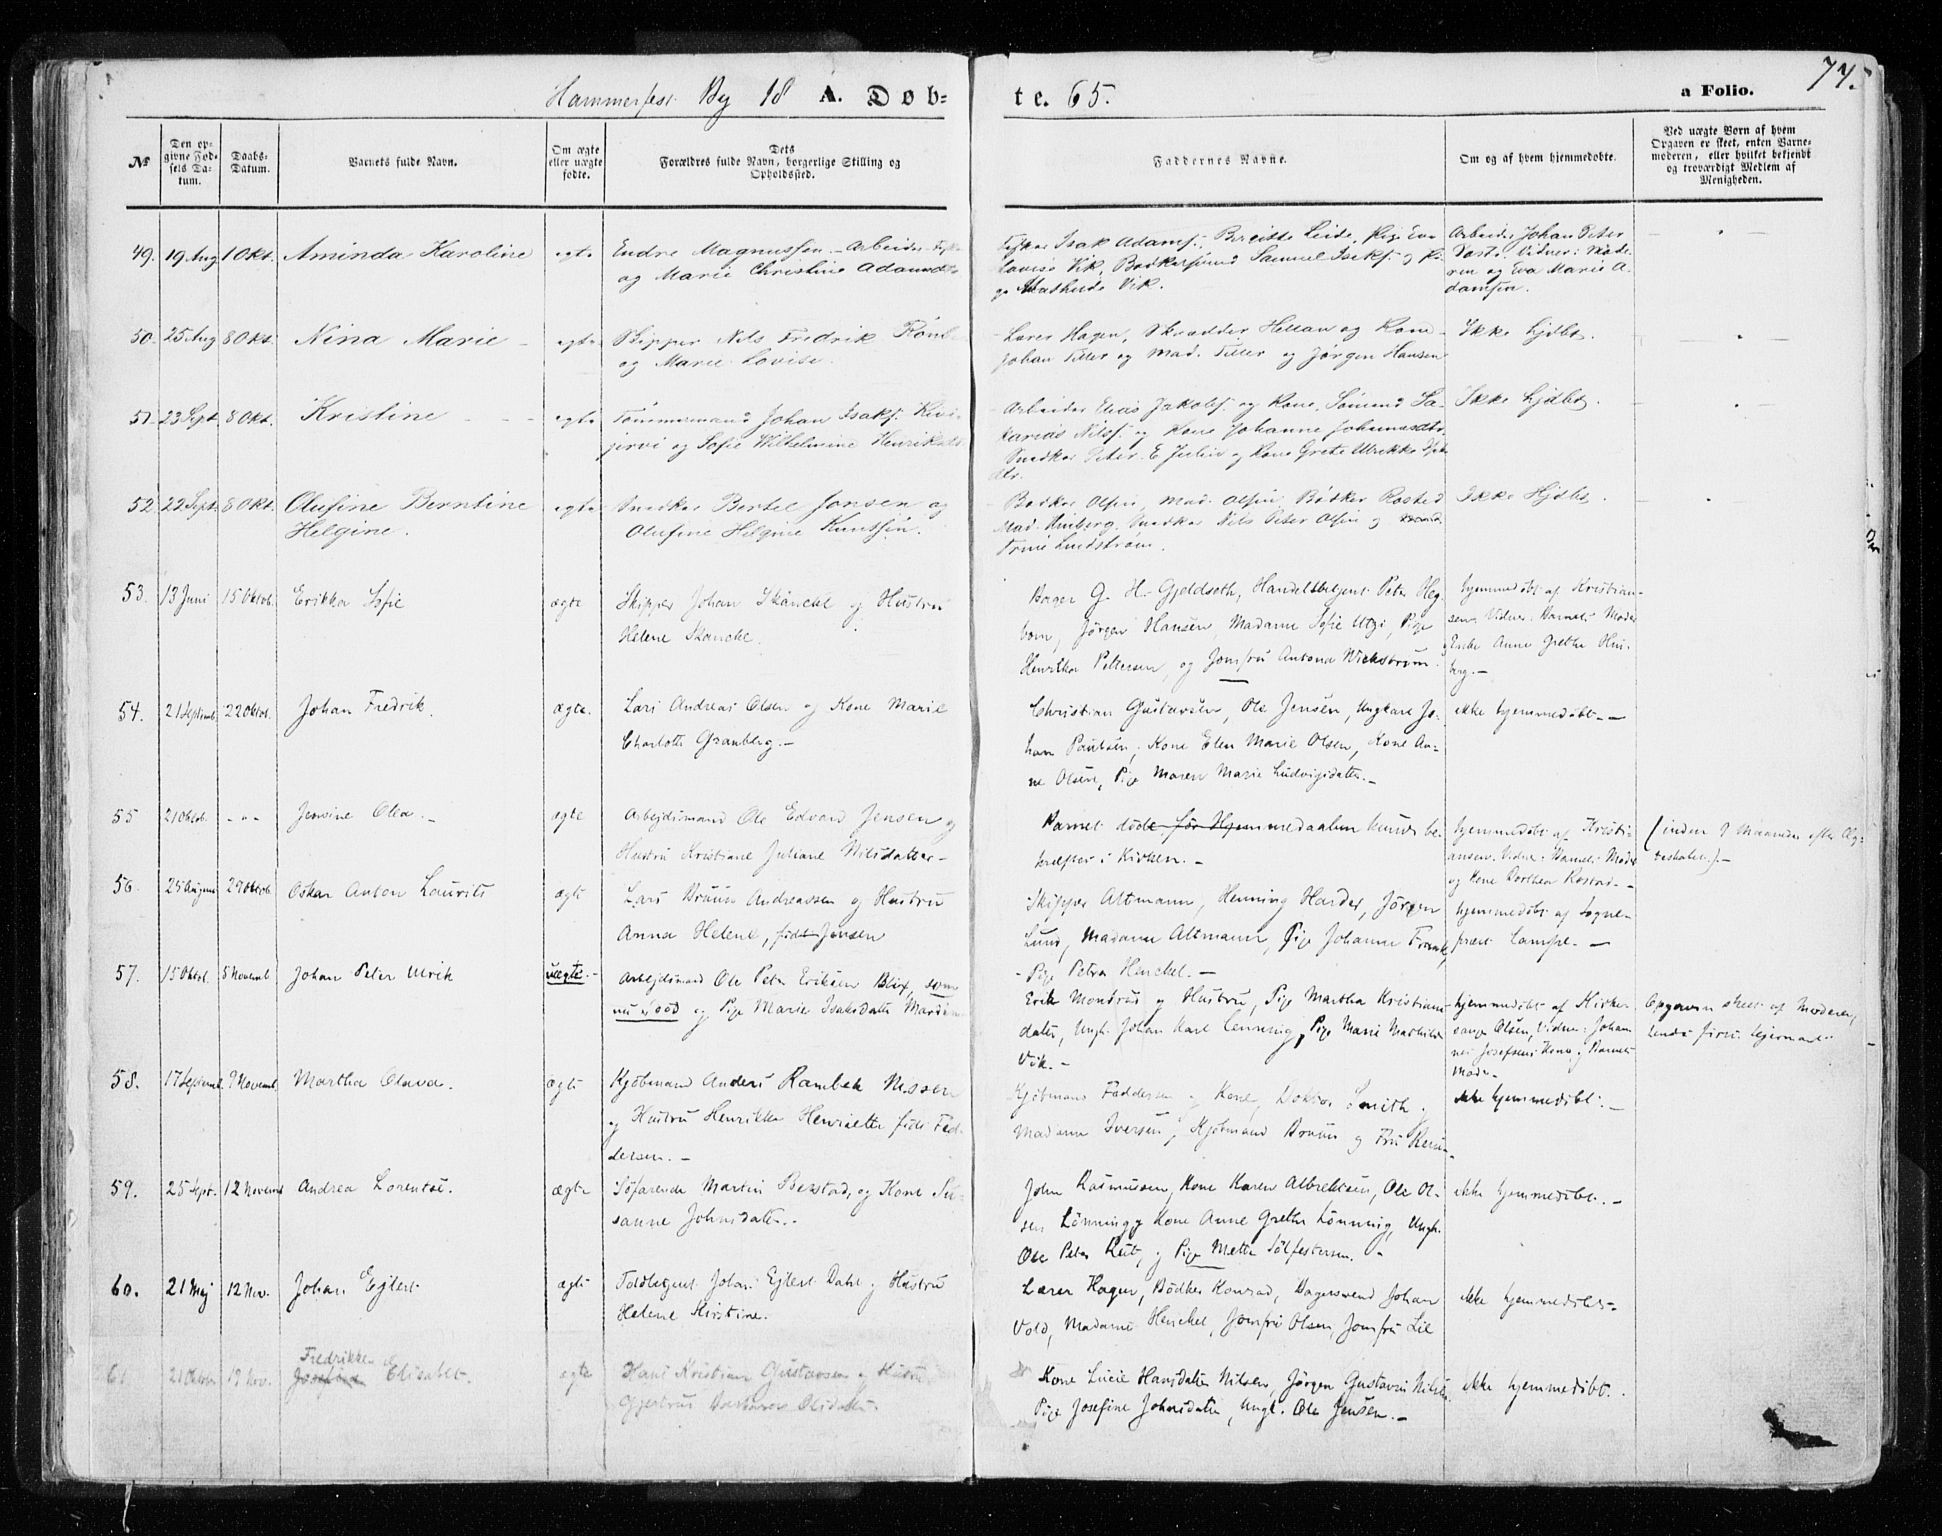 Hammerfest By 18 A. Døb-
te. 65.
a Folio. 77.
№
Den op-
givne Fød-
sels Da-
tum.
Daabs-
Datum.
Barnets fulde Navn.
Om ægte
eller uægte
fødte.
Dets
Forældres fulde Navn, borgerlige Stilling og
Opholdssted.
Faddernes Navne.
Om og af hvem hjemmedøbte.
Ved uægte Børn af hvem
Opgaven er skeet, enten Barne-
moderen, eller hvilket bekjendt
og troværdigt Medlem af
Menigheden.
49. 19 Aug 1 Okt. Aminda Karoline egte Endre Magnussen - Arbeider
og Marie Christine Adamsd
Isak Adams. Birgitte Eva
Lovise Vik, Bødkersvend Samuel Isaks. og Pi-
ge Mathilde Vik.
Arbeider Johan Peter
Vidner: Mode-
ren og Eva Marie A-
damsen.
50. 25 Aug 8 Okt. Nina Marie egte Skipper Nils Fredrik
og Marie Lovise.
Lærer Hagen, Skrædder og Kone
Johan Tiller og Mad. Tiller og Jørgen Hansen
Ikke hjdbt.
51. 23 Sept. 8 Okt. Kristine egte Tømmermand Johan Isaks. Kivi-
jervi og Sofie Wilhelmine Henriksdtr
Arbeider Elias Jakobs. og Kone, Sømand Sa-
karias Nils. og Kone Johanne Johannesdtr.
Snedker Peter E. og Kone Grete Ulrikke
dtr.
Ikke hjdbt.
52. 22 Sept. 8 Okt. Olufine Berntine
Helgine.
egte Snedker Bertel Jonsen og
Olufine Helgine
Bødker Olsen, Mad. Olsen Bødker Rosted
Mad. Snedker Nils Peter Olsen og
Trine Lindstrøm.
Ikke Hjdbt.
53. 13 Juni 15 Oktob. Erikka Sofie ægte Skipper Johan Skancke og Hustru
Helene Skancke.
Bager G. H. Gjeldseth, Handelsbetjent Peter Heg-
bom, Jørgen Hansen, Madame Sofie Utzi, Pige
Henrikka Pettersen, og Jomfru Antona Wickstrøm.
hjemmedøbt af Kristian-
sen, Vidner: Barnets Moder
Enke Anne Grethe
berg.-
54. 21 Septemb. 22 Oktob. Johan Fredrik. ægte. Lars Andreas Olsen og Kone Marie
Charlotte Granberg.-
Christian Gustavsen, Ole Jensen, Ungkarl Jo-
han Paulsen, Kone Elen Marie Olsen, Kone An-
ne Olsen, Pige Maren Marie Ludvigsdatter.-
ikke hjemmedøbt.-
55 2 Oktob. - " - Jensine Olea.- ægte Arbejdsmand Ole Edvard Jensen og
Hustru Kristiane Juliane Nilsdatter-
Barnet døde før Hjemmedaaben kunde be-
kræftes i Kirken.-
hjemmedøbt af Kristi-
ansen. Vidner: Barnets Moder
og Kone Dorthea Rostad.-
(inden 9 Maaneder efter Æg-
teskabet.)-
56. 25 August 29 Oktob. Oskar Anton Laurits ægte Lars Bruun Andreassen og Hustru
Anna Helene, født Jensen
Skipper Altmann, Henning Harder, Jørgen
Lund, Madame Altmann, Pige Johanne Frank,
Pige Petra Henckel.-
hjemmedøbt af Sogne-
præst Lampe.-
57. 15 Oktob. 5 Novemb. Johan Peter Ulrik uægte.- Arbejdsmand Ole Peter Eriksen Blix, som
nu død og Pige Marie Isaksdatter
Erik Monsrud og Hustru, Pige Martha Kristians-
datter, Ungk. Johan Karl Lenning, Pige Marie Mathilde
Vik.-
hjemmedøbt af Kirke-
sanger Olsen, Vidner: Johan-
nes Josefsens Kone og Barnets
Moder.
Opgaven skeet af Moderen,
58. 17 Septemb. 9 Novemb. Martha Olava. ægte Kjøbmand Anders Rambek Nissen
og Hustru Henrikka Henriette født Fed-
dersen.-
Kjøbmand Feddersen og Kone, Doktor Smith,
Madame Iversen, Kjøbmand Bruun og Fru
ikke hjemmedøbt.-
59. 25 Sept. 12 Novemb Andrea Lorentse. ægte Søfarende Martin Bexstad, og Kone Su-
sanne Johnsdatter.-
John Rasmussen, Kone Karen Albrektsen, Ole Ol-
sen Lønning, Kone Anne Grethe Lønning, Ungk.
Ole Peter og Pige Mette Sølfestersen.-
ikke hjemmedøbt.-
60. 21 Mej 12 Nov. Johan Ejlert ægte Toldbetjent Johan Ejlert Dahl og Hustru
Helene Kristine.
Lærer Hagen, Bødker Konrad, Bagersvend Johan
Vold, Madame Henckel, Jomfru Olsen, Jomfru Lie
ikke hjemmedøbt.-
61. 21 Oktober 19 Nov. Fredrikke
Elisabet. ægte Hans Kristian Gustavsen og Hustru
Gjertrud Olsdatter.
Kone Lucie Hansdatter Nilsen, Jørgen Gustavus Nilsen
Pige Josefine Johnsdatter, Ungk. Ole Jensen.-
ikke hjemmedøbt.